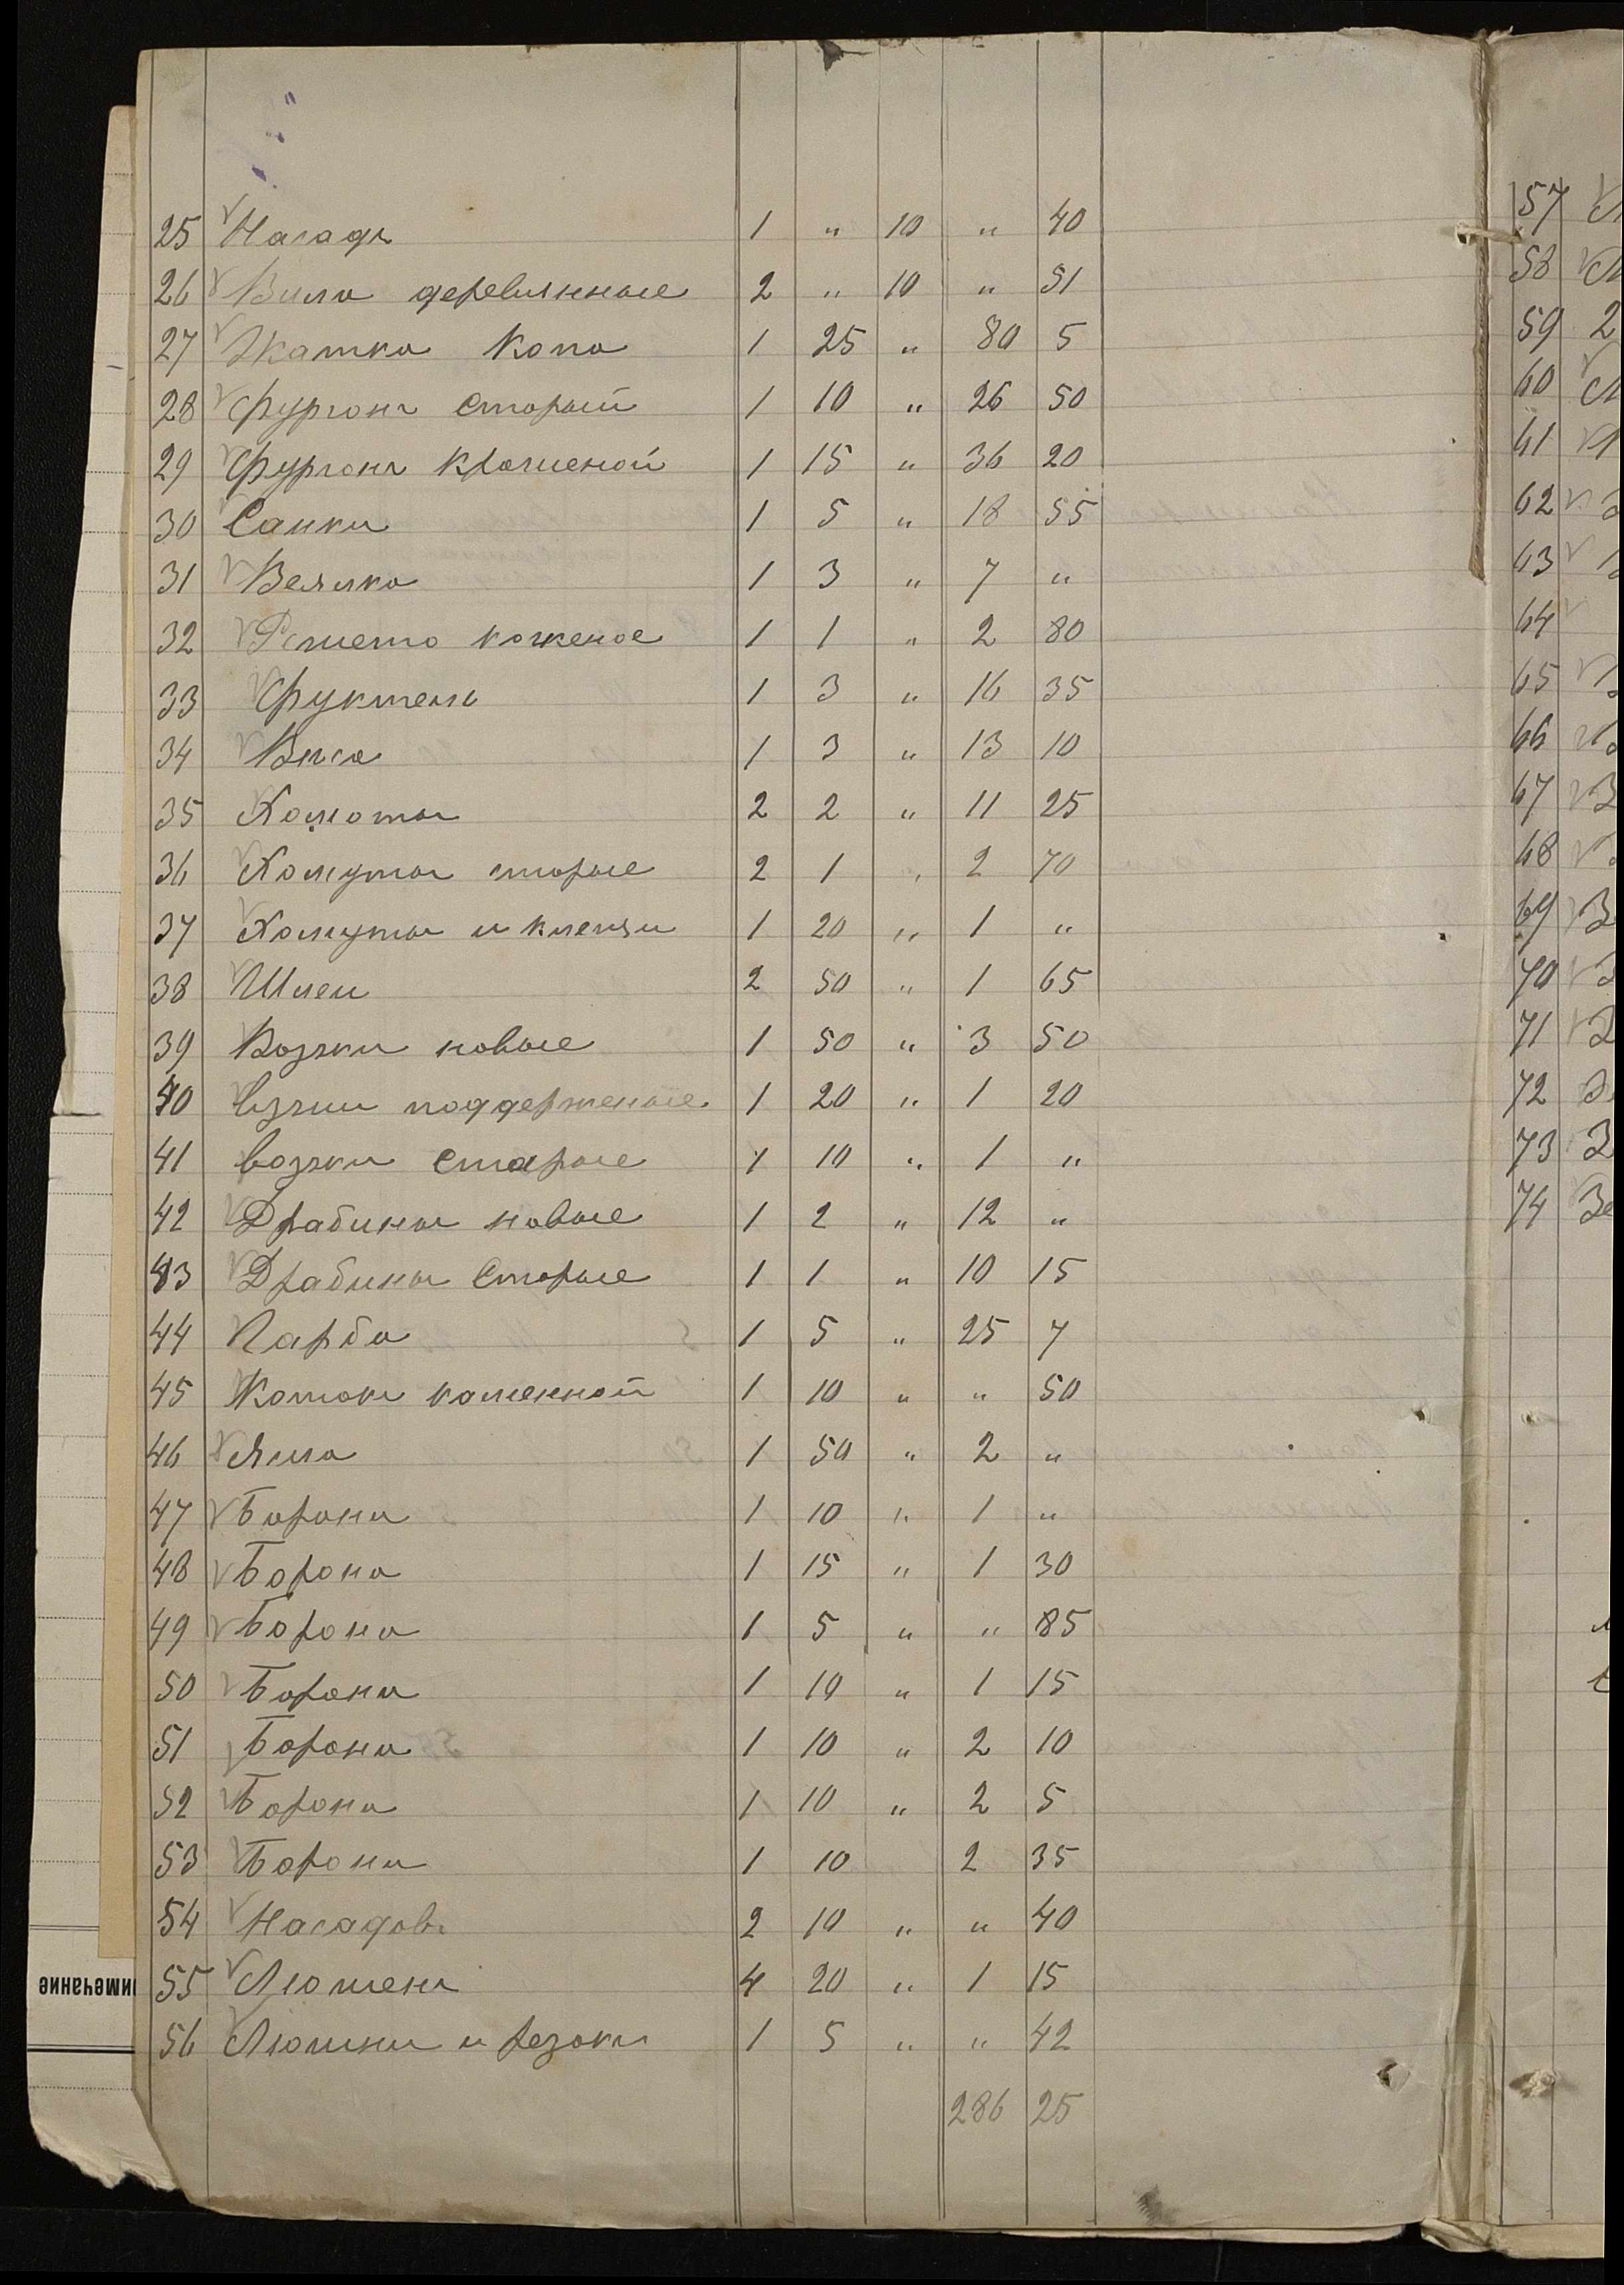 25 Насадъ 1 " 10 " 40
26 Вила деревянные 2 " 10 " 51
27 Жатка Копа 1 25 " 80 5
28 Фургонъ старый 1 10 " 26 50
29 Фургонъ крашеной 1 15 " 36 20
30 Санки 1 5 " 18 55
31 Веялка 1 3 " 7 "
32 Решето коженое 1 1 " 2 80
33 Фуктель 1 3 " 16 35
34 1 3 " 13 10
35 Хомоты 2 2 " 11 25
36 Хомуты старые 2 1 " 2 70
37 Хомуты и клещи 1 20 " 1 "
38 Шлеи 2 50 " 1 65
39 Возжи новые 1 50 " 3 50
40 поддержаные 1 20 " 1 20
41 возжи старые 1 10 " 1 "
42 Драбины новые 1 2 " 12 "
43 Драбины старые 1 1 " 10 15
44 Гарба 1 5 " 25 7
45 Котокъ каменной 1 10 " " 50
46 Ясла 1 50 " 2 "
47 Борона 1 10 " 1 "
48 Борона 1 15 " 1 30
49 Борона 1 5 " " 85
50 Борона 1 10 " 1 15
51 Борона 1 10 " 2 10
52 Борона 1 10 " 2 5
53 Борона 1 10 2 35
54 Насадовъ 2 10 " " 40
55 Люшень 4 20 " 1 15
56 Люшни и резокъ 1 5 " " 42
286 25
57
58
59
60
61
62
63
64
65
66
67
68
69
70
71
72
73
74
имечание